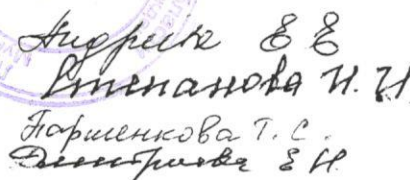 Андреик Е Е
Степанова Н. И.
Паршенкова Т. С.
Дмитриева Е Н.